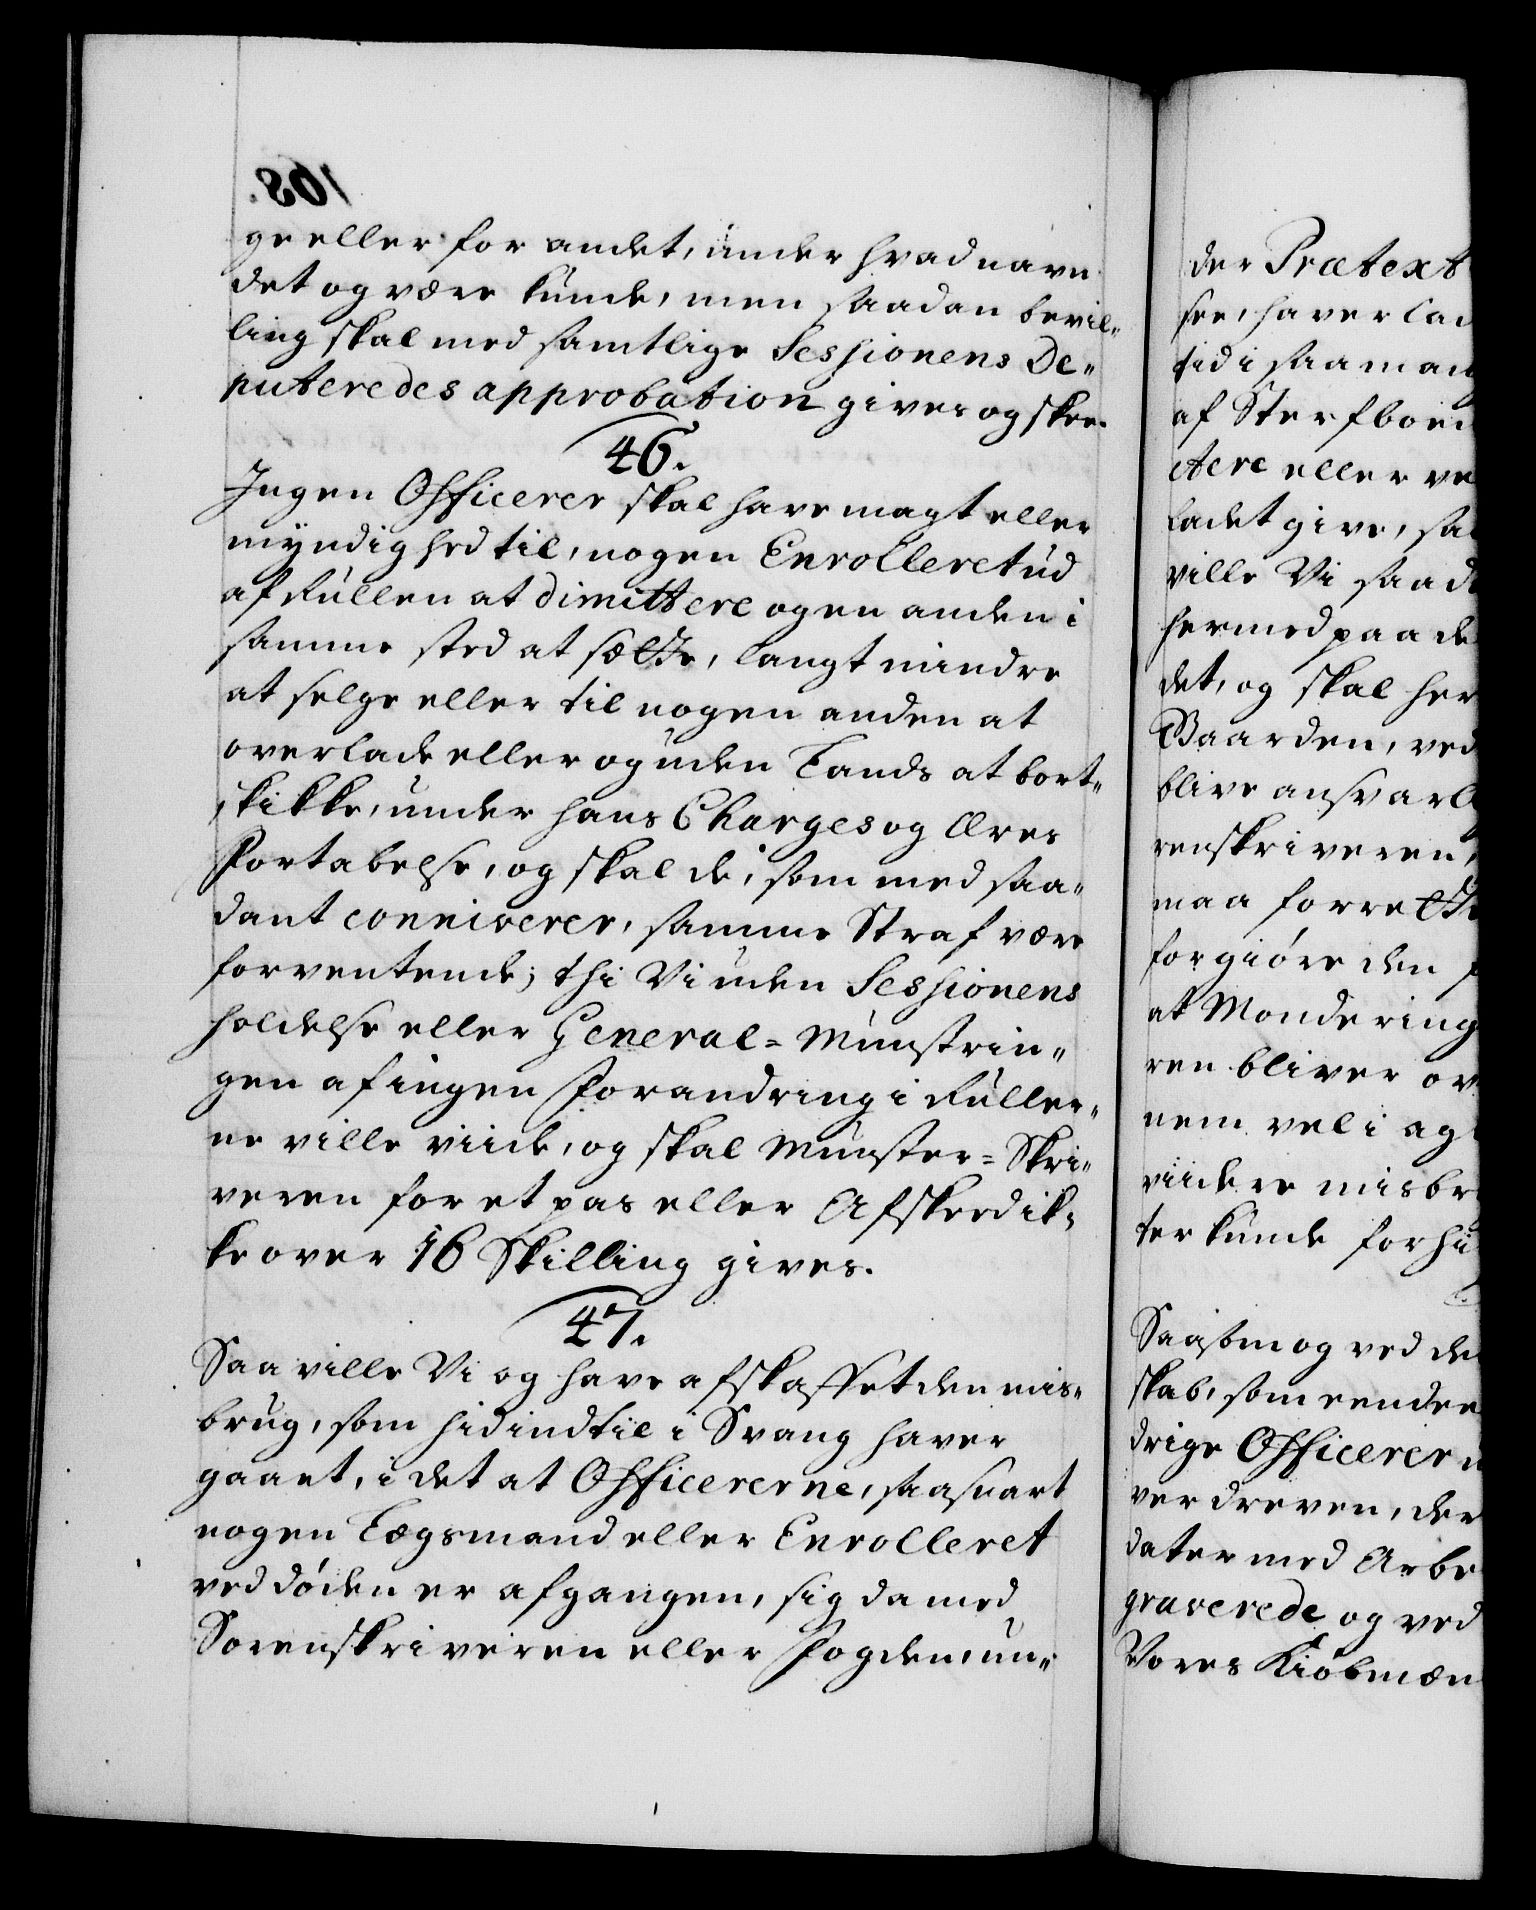 ge eller for andet, under hvad navn
det og være kunde, men saadan bevil„
ling skal med samtlige Sessionens De„
puteredes approbation gives og skee.
46.
Ingen Officerer skal have magt eller
myndighed til, nogen Enrolleret ud
af Rullen at dimittere og en anden i
samme sted at sætte, langt mindre
at selge eller til nogen anden at
overlade eller og uden Lands at bort„
skikke, under hans Charges og Æres
Fortabelse, og skal de, som med saa„
dant conniverer, samme Straf være
forventende; thi Vi uden Sessionens
holdelse eller General-Mynstrin„
gen af ingen Forandring i Ruller„
ne ville viide, og skal Mynster-Skri„
veren for et pas eller Afskeed ik„
ke over 16 Skilling gives.
47.
Saa ville Vi og have afskaffet den mis„
brug, som hidindtil i Svang haver
gaaet, i det at Officererne, saasnart
nogen Lægsmand eller Enrolleret
ved døden er afgangen, sig da med
Sorenskriveren eller Fogden, un„
der Prætext
see, haver lad
tid i saa mang
af Sterfboen
ctere eller ve
ladet give, saa
ville Vi saad
hermed paa de
det, og skal her
Gaarden, ved
blive ansvarl
renskriveren,
maa forrette
forgiøre den
at Mondering
ren bliver ov
nem vel i ag
viidere misbr
ter kunde forhi
Saasom og ved de
skab, som eendee
drige Officerer
ver dreven, der
dater med Arbe
graverede og ved
Vores Kiøbmæn